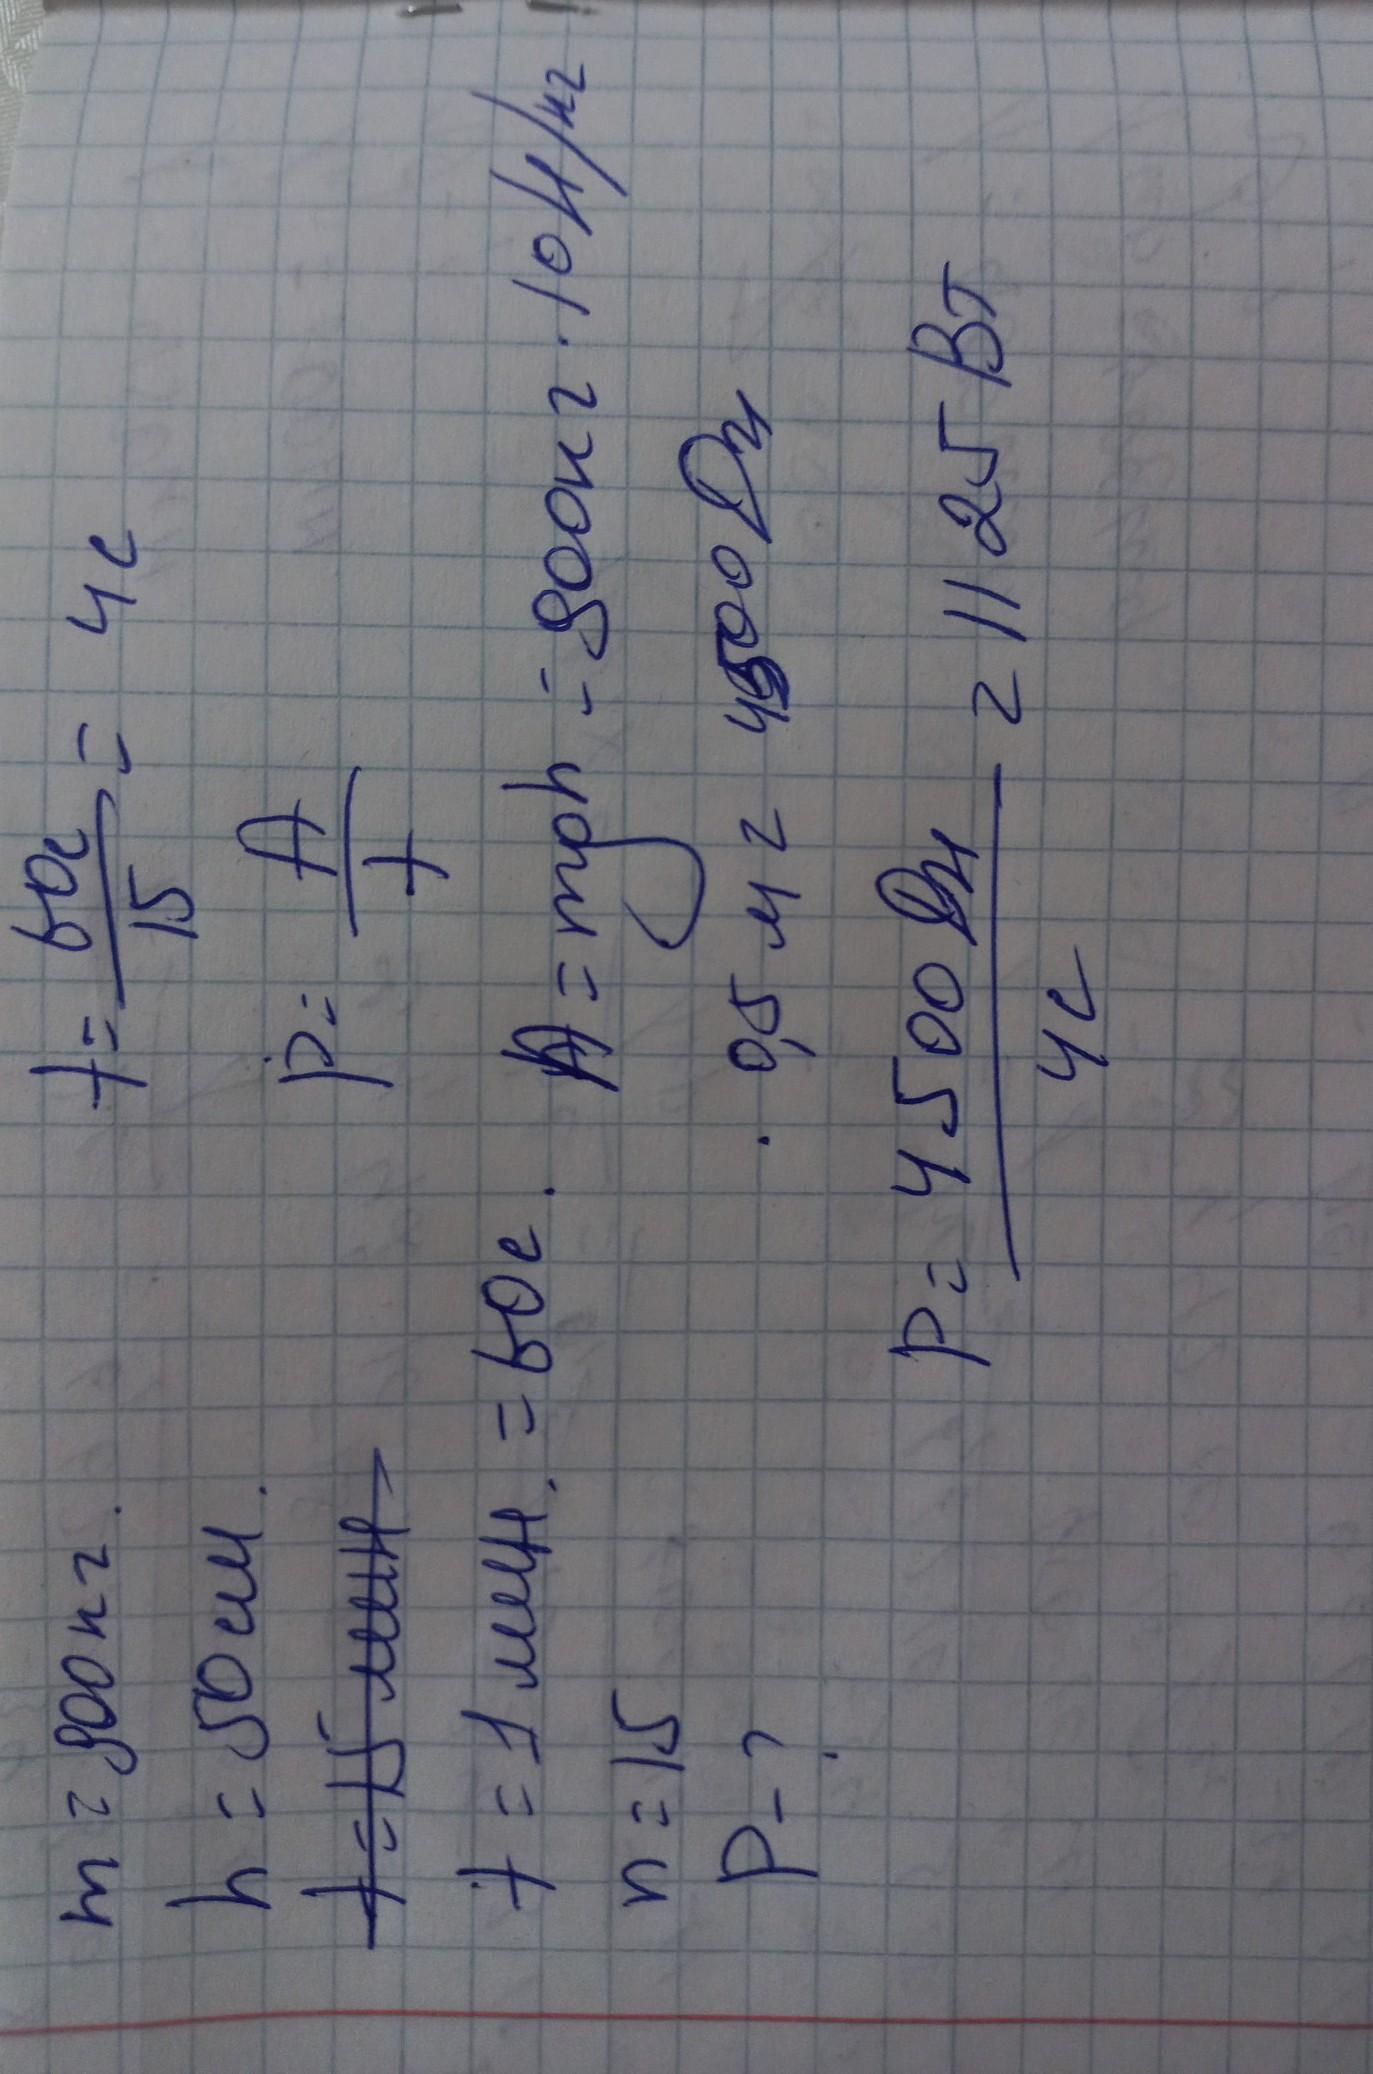 m = 900кг.
h = 50см.
t = 15 мин
t = 1 мин. = 60с.
n = 15
P - ?
t = 60с/15 = 4с
P = A/t
A = mgh = 900кг · 10Н/кг
· 0,5м = 4500Дж
P = 4500Дж/4с = 1125Вт